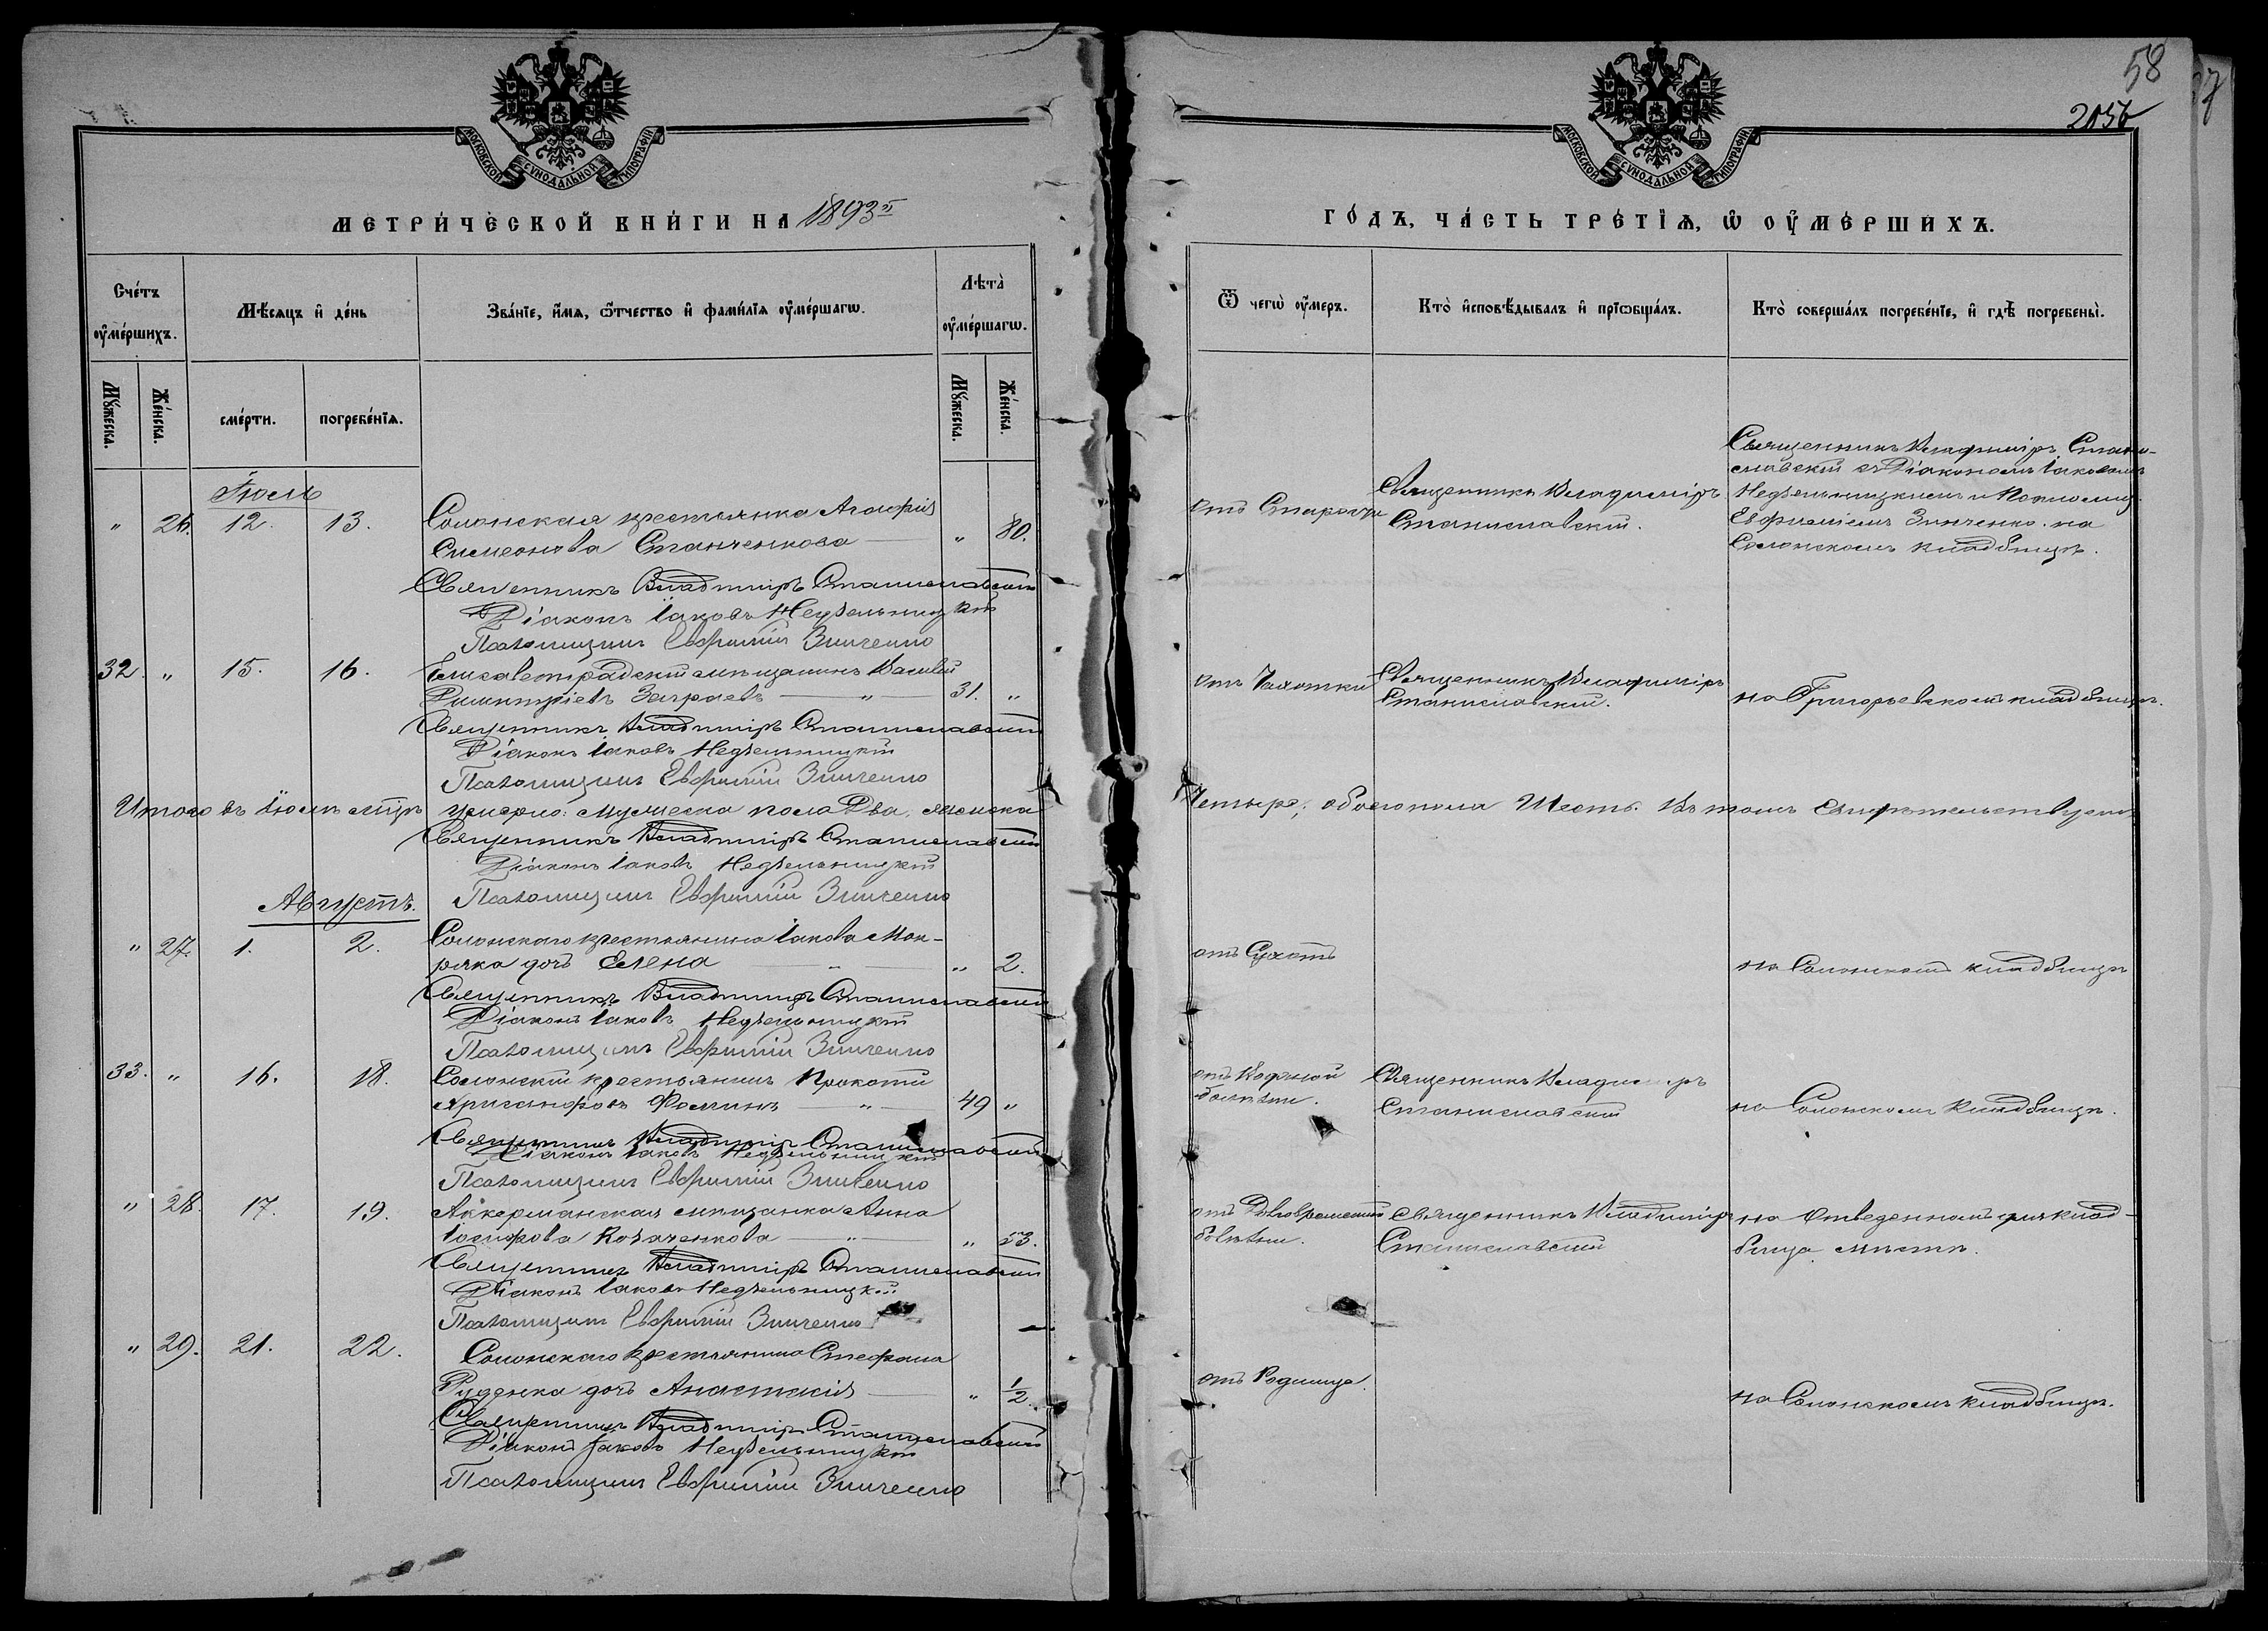 58
205
МОСКОВСКОЙ СѴНОДАЛЬНОЙ ТИПОГРАФІИ
МОСКОВСКОЙ СѴНОДАЛЬНОЙ ТИПОГРАФІИ
МЕТРИ́ЧЕСКОЙ КНИ́ГИ НА 1893й
ГО́ДЪ, ЧА́СТЬ ТРЕ́ТІѦ, Ѡ ОУМЕ́РШИХЪ.
Сче́тъ оумершихъ.
Мѣ́сяцъ и де́нь
Зва́ніе, и́мѧ, ѻ҆́тчество и фами́лія оумершагѡ.
Лѣта̀ оумершагѡ.
Ѿ чегѡ̀ оумеръ.
Кто̀ исповѣ́дывалъ и пріѡбща́лъ.
Кто̀ соверша́лъ погребе́ніе, и гдѣ̀ погребены̀.
Мꙋ́жеска.
Же́нска.
сме́рти.
погребе́нїѧ.
Мꙋ́жеска.
Же́нска.
Іюль
" 26. 12. 13. Солонская крестьянка Агафія
Симеонова Станченкова — " 80.
отъ Старости
Священникъ Владиміръ
Станиславскій.
Священникъ Владиміръ Стани-
славскій съ Діакономъ Іаковомъ
Недзельницкимъ и Псаломщ.
Евфиміемъ Зинченко. на
Солонскомъ кладбищѣ.
Священникъ Владиміръ Станиславскій
Діаконъ Іаковъ Недзельницкій
Псаломщикъ Евфимій Зинченко
32. " 15. 16. Елисаветградскій мѣщанинъ Василій
Димитріевъ — " — 31. "
отъ Чахотки
Священникъ Владиміръ
Станиславскій.
на Григорьевскомъ кладбищѣ.
Священникъ Владиміръ Станиславскій
Діаконъ Іаковъ Недзельницкій
Псаломщикъ Евфимій Зинченко
Итого въ Іюлѣ мцѣ умерло: мужеска пола Два, женска Четыре, обоего пола Шесть. Въ томъ свидѣтельствуемъ
Священникъ Владиміръ Станиславскій
Діаконъ Іаковъ Недзельницкій
Псаломщикъ Евфимій Зинченко
Августъ.
" 27. 1. 2. Солонскаго крестьянина Іакова Мок-
ряка дочь Елена — " — " 2.
отъ Сухотъ
на Солонскомъ кладбищѣ
Священникъ Владиміръ Станиславскій
Діаконъ Іаковъ Недзельницкій
Псаломщикъ Евфимій Зинченко
33. " 16. 18. Солонскій крестьянинъ Прокопій
Хрисанфовъ Фоминъ — " — 49 "
отъ Водяной
болѣзни.
Священникъ Владиміръ
Станиславскій
на Солонскомъ кладбищѣ.
Священникъ Владиміръ Станиславскій
Діаконъ Іаковъ Недзельницкій
Псаломщикъ Евфимій Зинченко
" 28. 17. 19. Аккерманская мѣщанка Анна
Іосифова Козаченкова — " — " 53.
отъ Долговременной
болѣзни.
Священникъ Владиміръ
Станиславскій
на Отведенномъ для клад-
бища мѣстѣ.
Священникъ Владиміръ Станиславскій
Діаконъ Іаковъ Недзельницкій
Псаломщикъ Евфимій Зинченко
" 29. 21. 22. Солонскаго крестьянина Стефана
Руденка дочь Анастасія — " 1/2.
отъ Родимца.
на Солонскомъ кладбищѣ.
Священникъ Владиміръ Станиславскій
Діаконъ Іаковъ Недзельницкій
Псаломщикъ Евфимій Зинченко